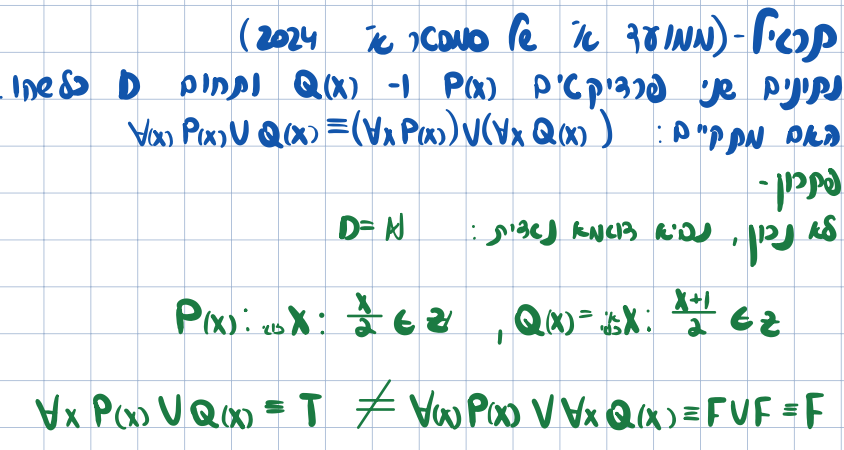 תרגיל - (ממועד א' של סמסטר א' 2024)
נתונים שני פרדיקאים P(x) ו- Q(x) ותחום D כלשהו.
האם מתקיים: ∀(x) P(x) ∪ Q(x) ≡ (∀x P(x)) ∪ (∀x Q(x))
פתרון -
לא נכון, נביא דוגמא נגדית: D = ℕ
P(x): זוגי X: x/2 ∈ Z, Q(x) = אי זוגי X: x+1/2 ∈ Z
∀x P(x) ∪ Q(x) ≡ T ≠ ∀(x) P(x) ∨ ∀x Q(x) ≡ F ∪ F ≡ F